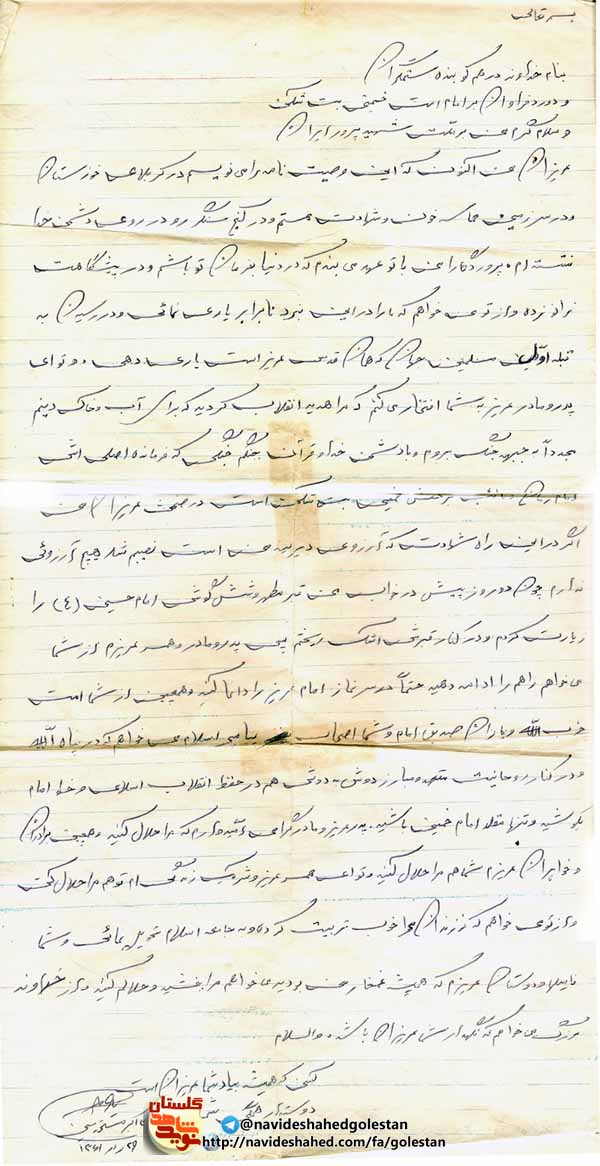 بسمه تعالی
بنام خداوند درهم کوبنده ستمگران
و درود فراوان بر امام امت خمینی بت شکن
و سلام گرم من بر ملت شهید پرور ایران
عزیزان من اکنون که این وصیت نامه را می نویسم در کربلای خوزستان
و در سرزمین حماسه خون و شهادت هستم و در کنج سنگر رو در روی دشمن خدا
نشسته ام، پروردگارا من با تو عهد می بندم که در دنیا بفرمان تو باشم و در پیشگاهت
زانو زده و از تو می خواهم که ما را در این نبرد نابرابر یاری نمائی و در رسیدن به
قبله اول مسلمین جهان که همان قدس عزیز است یاری دهی، و تو ای
پدر و مادر عزیز به شما افتخار می کنم که مرا هدیه انقلاب کردید که برای آب و خاک و دینم
مجدداً به جبهه جنگ بروم و با دشمن خدا و قرآن بجنگم جنگی که فرمانده اصلی اش
امام زمان و نائب بر حقش خمینی بت شکن است در ضمن عزیزان من
اگر در این راه شهادت که آرزوی دیرینه من است نصیبم شد هیچ آرزوئی
ندارم چون دو روز پیش در خواب من قبر مطهر و شش گوش امام حسین (ع) را
زیارت کردم و در کنار قبرش اشک ریختم پس پدر و مادر و همسر عزیزم از شما
می خواهم راهم را ادامه دهید حتماً در سر نماز امام عزیز را دعا کنید و همچنین از شما امت
حزب الله و یاران صدیق امام و شما اصحاب پیامبر اسلام می خواهم که در پناه الله
و در کنار روحانیت متعهد و مبارز دوش به دوش هم در حفظ انقلاب اسلامی و خط امام
بکوشید و تنها مقلد امام خمینی باشید. پدر عزیز و مادر گرامی امیدوارم که مرا حلال کنید و همچنین برادران
و خواهران عزیزم شما هم مرا حلال کنید و تو ای همسر عزیز و شریک زندگی ام تو هم مرا حلال کن
و از تو می خواهم که فرزندان مرا خوب تربیت کرده و به جامعه اسلام تحویل بمائی و شما
فامیلها و دوستان عزیزم که همیشه غمخار من بودید می خواهم مرا ببخشید و حلالم کنید و از خداوند
بزرگ می خواهم که نگهدار شما عزیزان باشد. والسلام
کسی که همیشه بیاد شما عزیزان است
دوستدار همیشگی شما
۱۳۶۱
گلستان
نوید شاهد
@navideshahedgolestan
http://navideshahed.com/fa/golestan